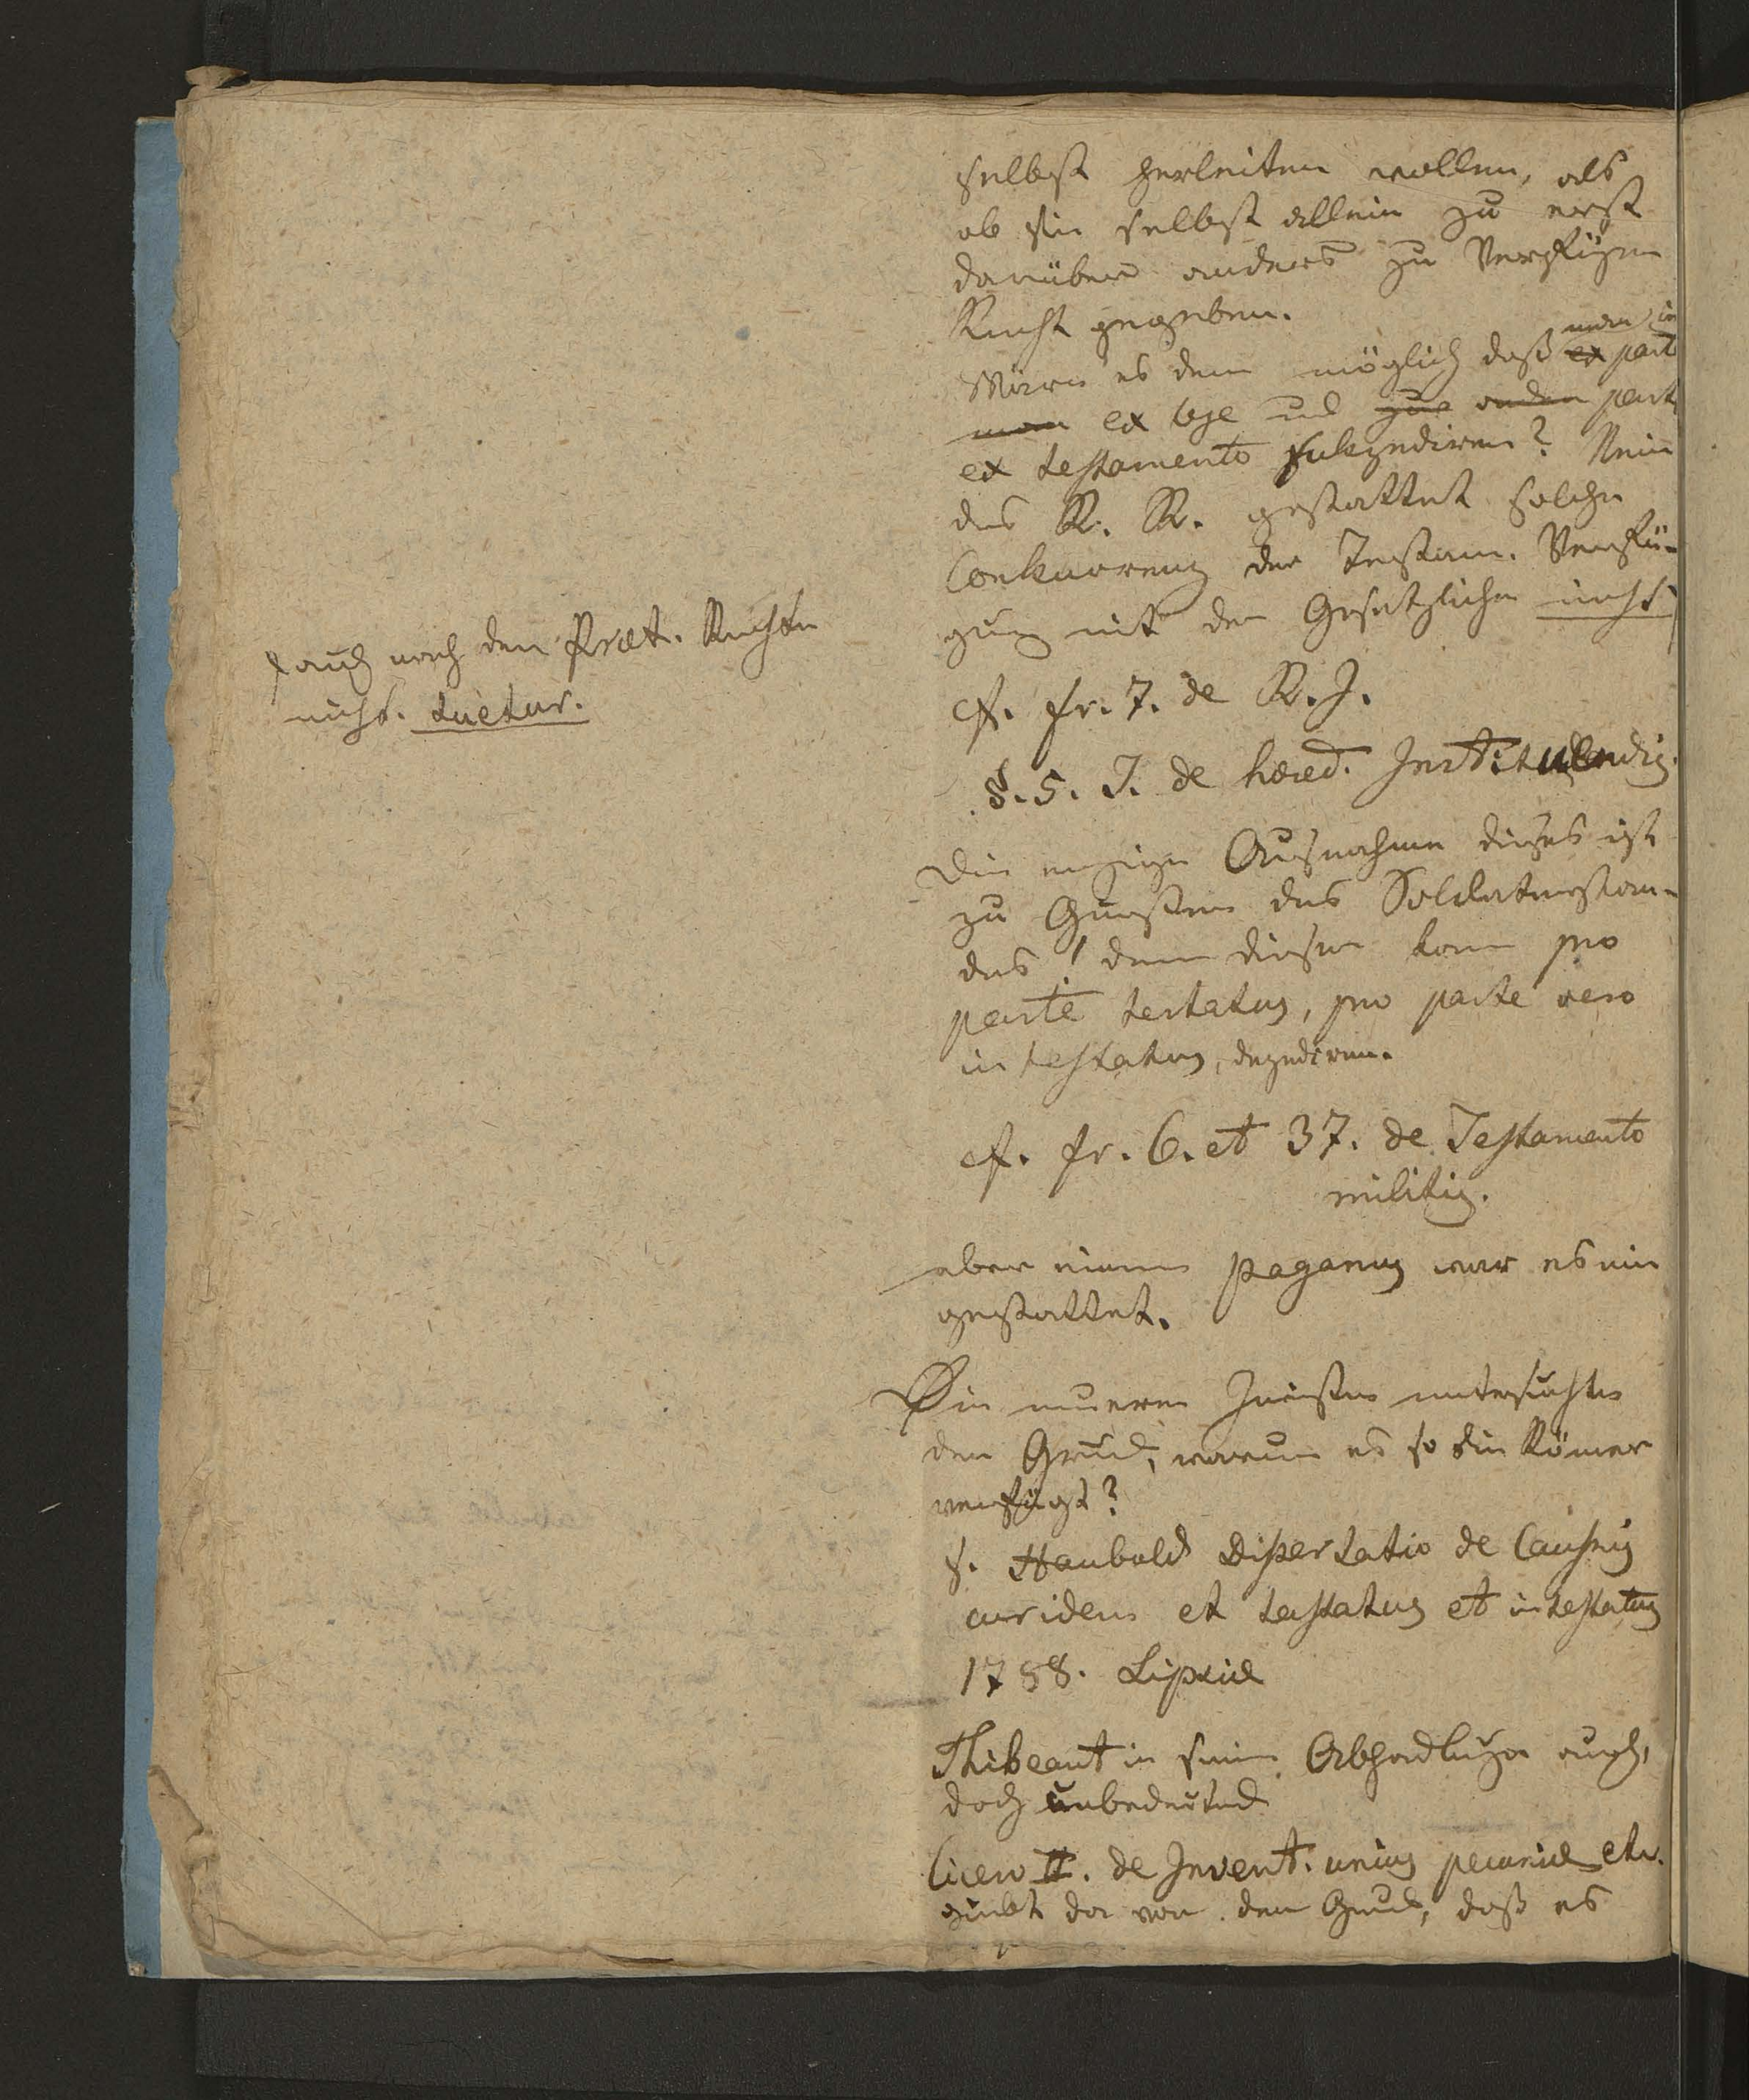 selbst herleiten wollen, als
ob sie selbst allein zu erst
darüber anders zu verfügen
Recht gegeben.
man in
Wäre es denn möglich daß ex part
man ex lege und zur andern part
ex testamento sukzediren? Nein
das R. R. gestattet solche
Conkurrenz der Testam. Verfü-
gung mit der Gesetzlichen nicht
auch nach den Præt. Rechten
nicht. tuetur.
cf. fr. 7. de R. J.
§. 5. J. de hæred. Instituendis.
Die einzige Ausnahme dieses ist
zu Gunsten des Soldatenstan-
des, denn dieser kann pro
parte testatus, pro parte vero
intestatus, dezediren.
cf. fr. 6. et 37. de Testamento
militis.
aber einem paganus war es nie
gestattet.
Die neuern Juristen untersuchten
den Grund, warum es so die Römer
verfügt?
s. Haubold Dissertatio de Causis
cur idem et testatus et intestatus
1788. Lipsiæ
Thibeaut in seinen Abhandlungen auch,
doch unbedeutend
Cicero II. de Invent. unius pecuniæ etc.
giebt da von den Grund, daß es